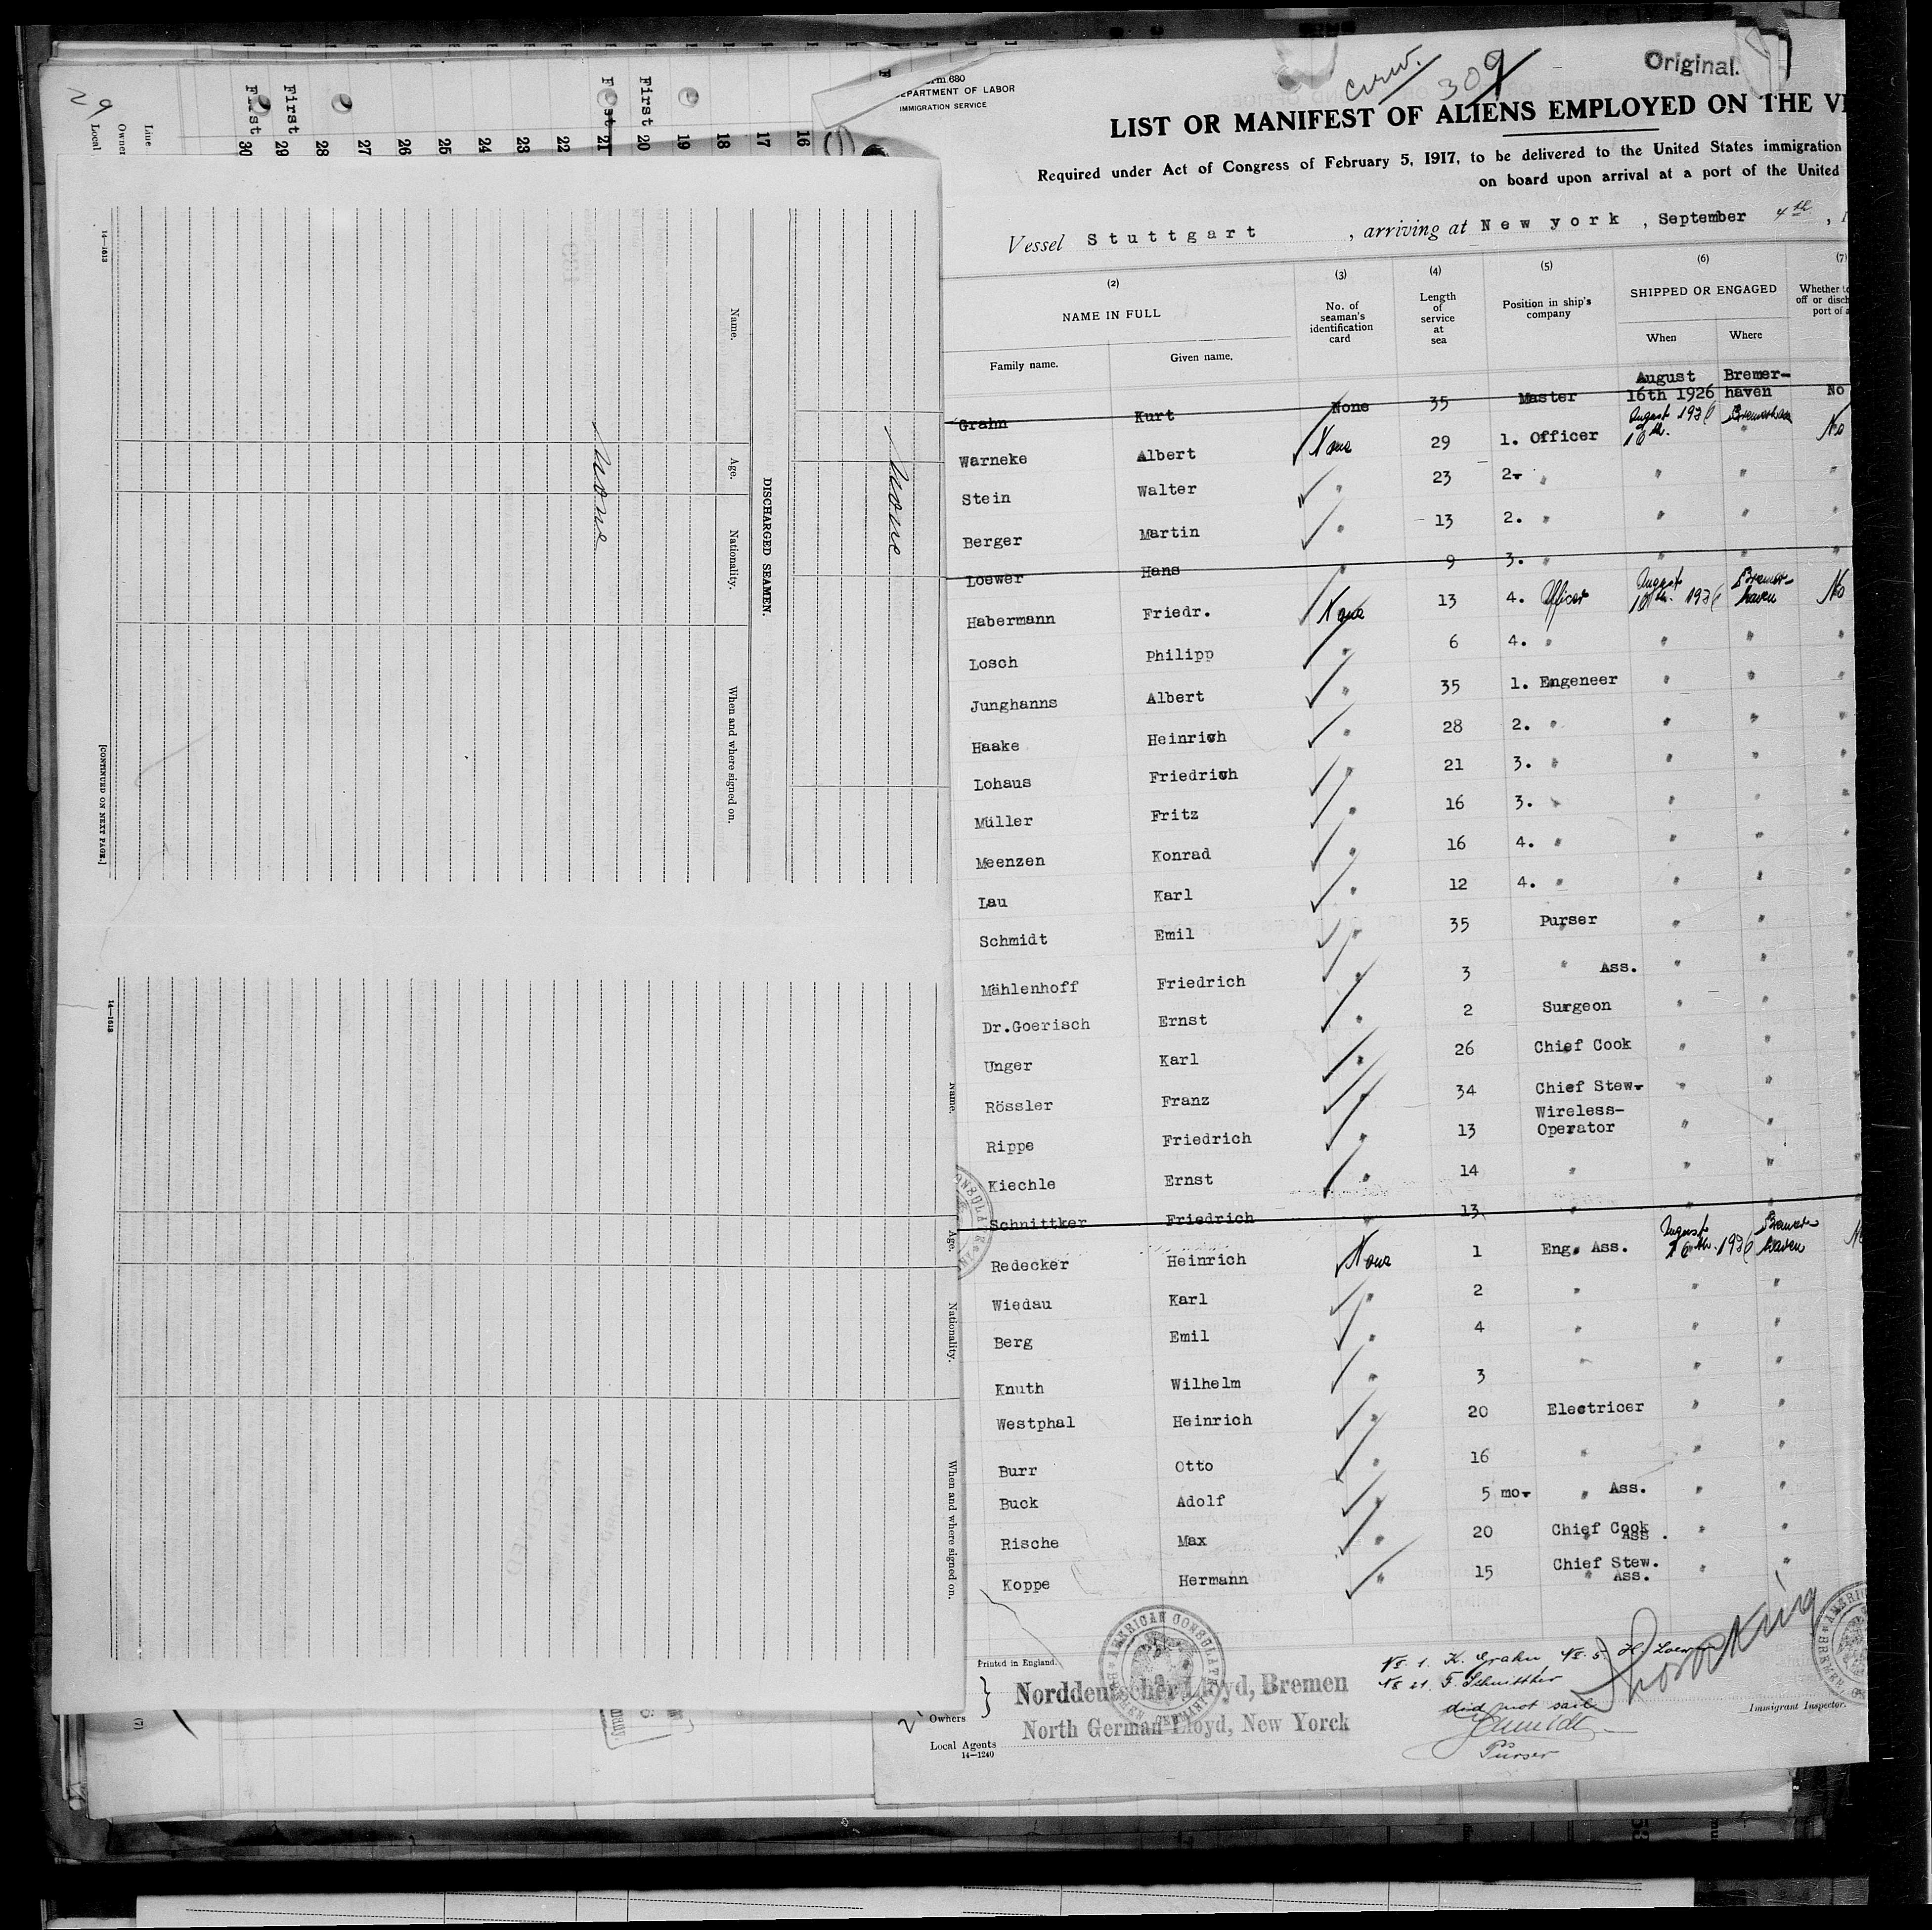 29
Local
Owner
Line
First 30
First 29
28
27
26
25
24
23
22
First 21
First 20
19
18
17
16
14—1613
[CONTINUED ON NEXT PAGE.]
Name.
Age.
Nationality.
When and where signed on.
DISCHARGED SEAMEN.
None
None
14—1613
Name.
Age.
Nationality.
When and where signed on.
rm 680
EPARTMENT OF LABOR
IMMIGRATION SERVICE
309
Original.
LIST OR MANIFEST OF ALIENS EMPLOYED ON THE
Required under Act of Congress of February 5, 1917, to be delivered to the United States immigration
on board upon arrival at a port of the United
Vessel Stuttgart , arriving at New york , September 4th ,
(2) (3) (4) (5) (6) (7)
NAME IN FULL No. of seaman's identification card Length of service at sea Position in ship's company SHIPPED OR ENGAGED Whether
off or
port of
Family name. Given name. When Where
Grahn Kurt None 35 Master August 16th 1926 Bremer-haven No
Warneke Albert None 29 1. Officer August 1926 16th. Bremerhaven " No
Stein Walter " 23 2- " " " "
Berger Martin " 13 2. " " " "
Loewer Hans " 9 3. " " " "
Habermann Friedr. None 13 4. Officer August 16th. 1926 Bremer-haven No
Losch Philipp " 6 4. " " " "
Junghanns Albert " 35 1. Engeneer " " "
Haake Heinrich " 28 2. " " " "
Lohaus Friedrich " 21 3. " " " "
Müller Fritz " 16 3. " " " "
Meenzen Konrad " 16 4. " " " "
Lau Karl " 12 4. " " " "
Schmidt Emil " 35 Purser " " "
Mählenhoff Friedrich " 3 " Ass. " " "
Dr.Goerisch Ernst " 2 Surgeon " " "
Unger Karl " 26 Chief Cook " " "
Rössler Franz " 34 Chief Stew- " "
Rippe Friedrich " 13 Wireless-Operator " "
Kiechle Ernst " 14 " " "
Schnittker Friedrich " 13 " " "
Redecker Heinrich None 1 Eng. Ass. August 16th. 1926 Bremer-haven
Wiedau Karl " 2 " " "
Berg Emil " 4 " " "
Knuth Wilhelm " 3 " " "
Westphal Heinrich " 20 Electricer " "
Burr Otto " 16 " " "
Buck Adolf " 5 mo- " Ass. " "
Rische Max " 20 Chief Cook " Ass. " "
Koppe Hermann " 15 Chief Stew. " Ass. " "
Printed in England.
AMERICAN CONSULATE BREMEN, GERMANY
Owners } Norddeutscher Lloyd, Bremen
Local Agents North German Lloyd, New Yorck
14—1240
No. 1. K. Grahn No. 5. H. Loewer
No 21. F. Schnittker
did not sail
Schmidt
Purser
Immigrant Inspector.